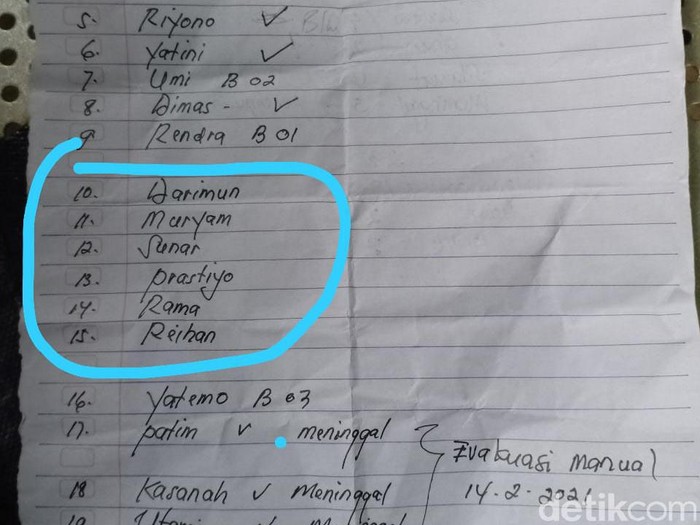 5. Riyono ✓
6. Yatini ✓
7. Umi B 02
8. Dimas - ✓
9 Rendra B 01
10. Darimun
11. Maryam
12. Sunar
13. prastiyo
14. Rama
15. Reihan
16. Yatemo B 03
17. patim v meninggal
Evakuasi manual
18 Kasanah v Meninggal
14-2-2021
19
detikcom